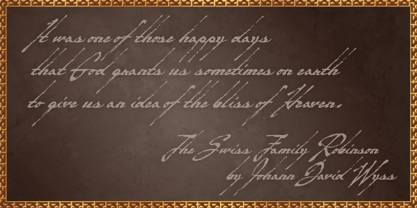 It was one of those happy days
that God grants us sometimes on earth
to give us an idea of the bliss of Heaven.
The Swiss Family Robinson
by Johann David Wyss